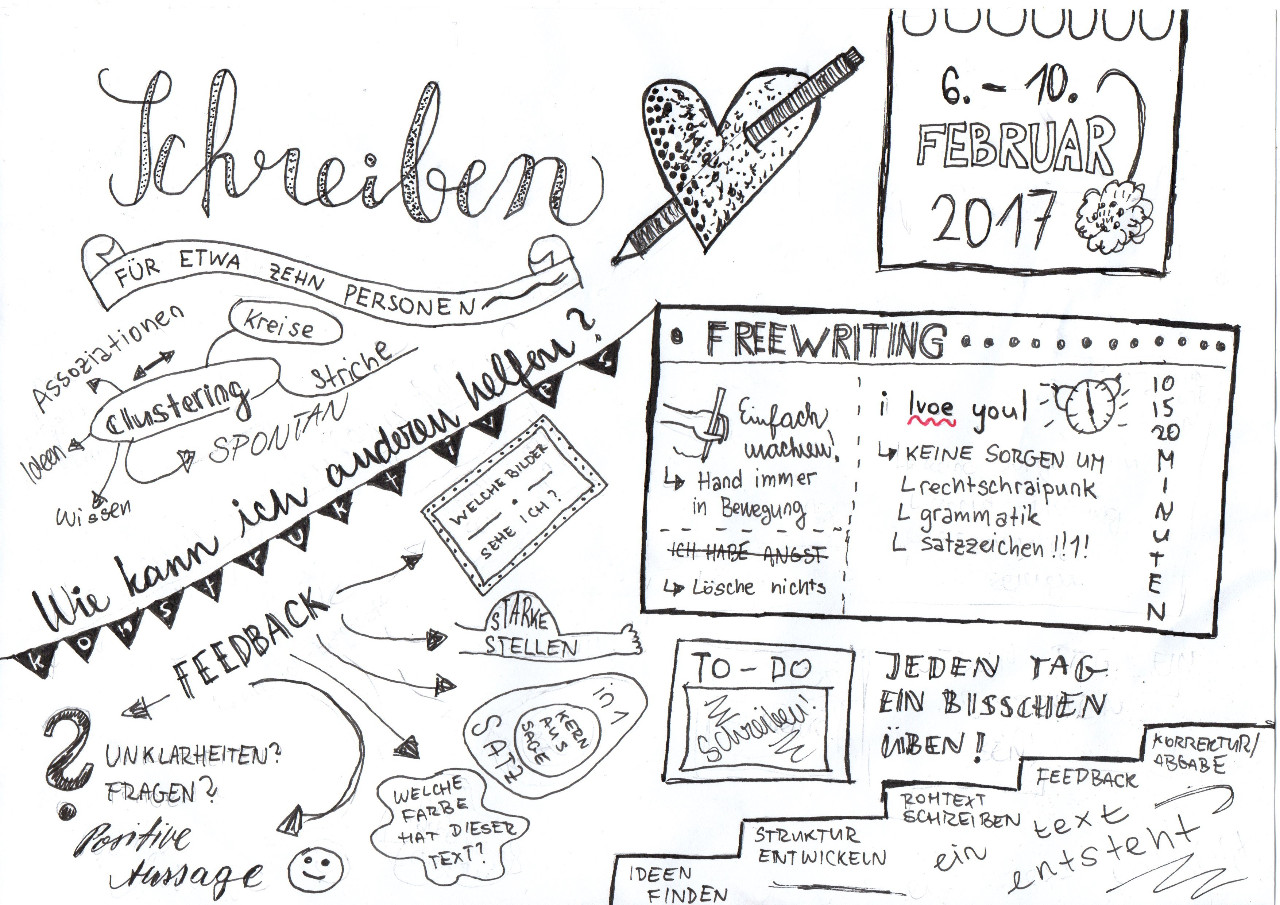 Schreiben
FÜR ETWA ZEHN PERSONEN
6. – 10.
FEBRUAR
2017
Assoziationen
Kreise
Clustering
Striche
SPONTAN
Ideen
Wissen
Wie kann ich anderen helfen?
KONSTRUKTIVES
FEEDBACK
WELCHE BILDER
SEHE ICH?
STARKE
STELLEN
KERN
AUS
SAGE
in 1
SATZ
WELCHE
FARBE
HAT DIESER
TEXT?
UNKLARHEITEN?
FRAGEN?
Positive
Aussage
FREEWRITING
Einfach
machen!
Hand immer
in Bewegung
ICH HABE ANGST
Lösche nichts
i lvoe you!
KEINE SORGEN UM
rechtschraipunk
grammatik
satzzeichen!!1!
10
15
20
MINUTEN
TO-DO
Schreiben!
JEDEN TAG
EIN BISSCHEN
ÜBEN!
IDEEN
FINDEN
STRUKTUR
ENTWICKELN
ROHTEXT
SCHREIBEN
FEEDBACK
KORREKTUR/
ABGABE
ein text
entsteht